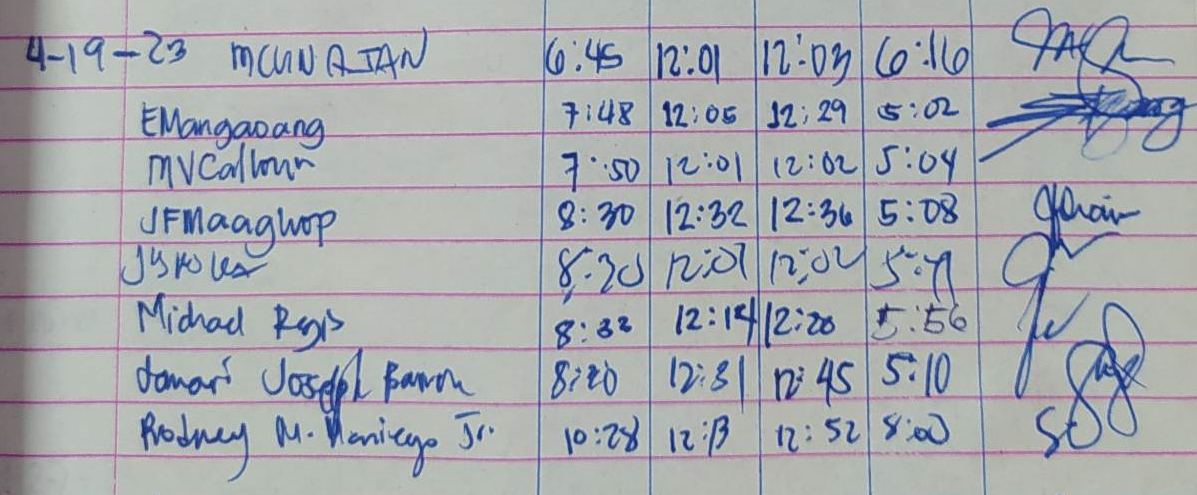 4-19-23 6:45 12:01 12:03 6:16
EMangaoang 7:48 12:05 12:29 5:02
MVCalhoun 7:50 12:01 12:02 5:04
JFMaaghop 8:30 12:32 12:36 5:08
8:30 12:01 12:02
Michael Regis 8:32 12:14 12:20 5:56
Jomari Joseph 8:20 12:31 12:45 5:10
Rodney M. Maniego Jr. 10:28 12:13 12:52 8:00